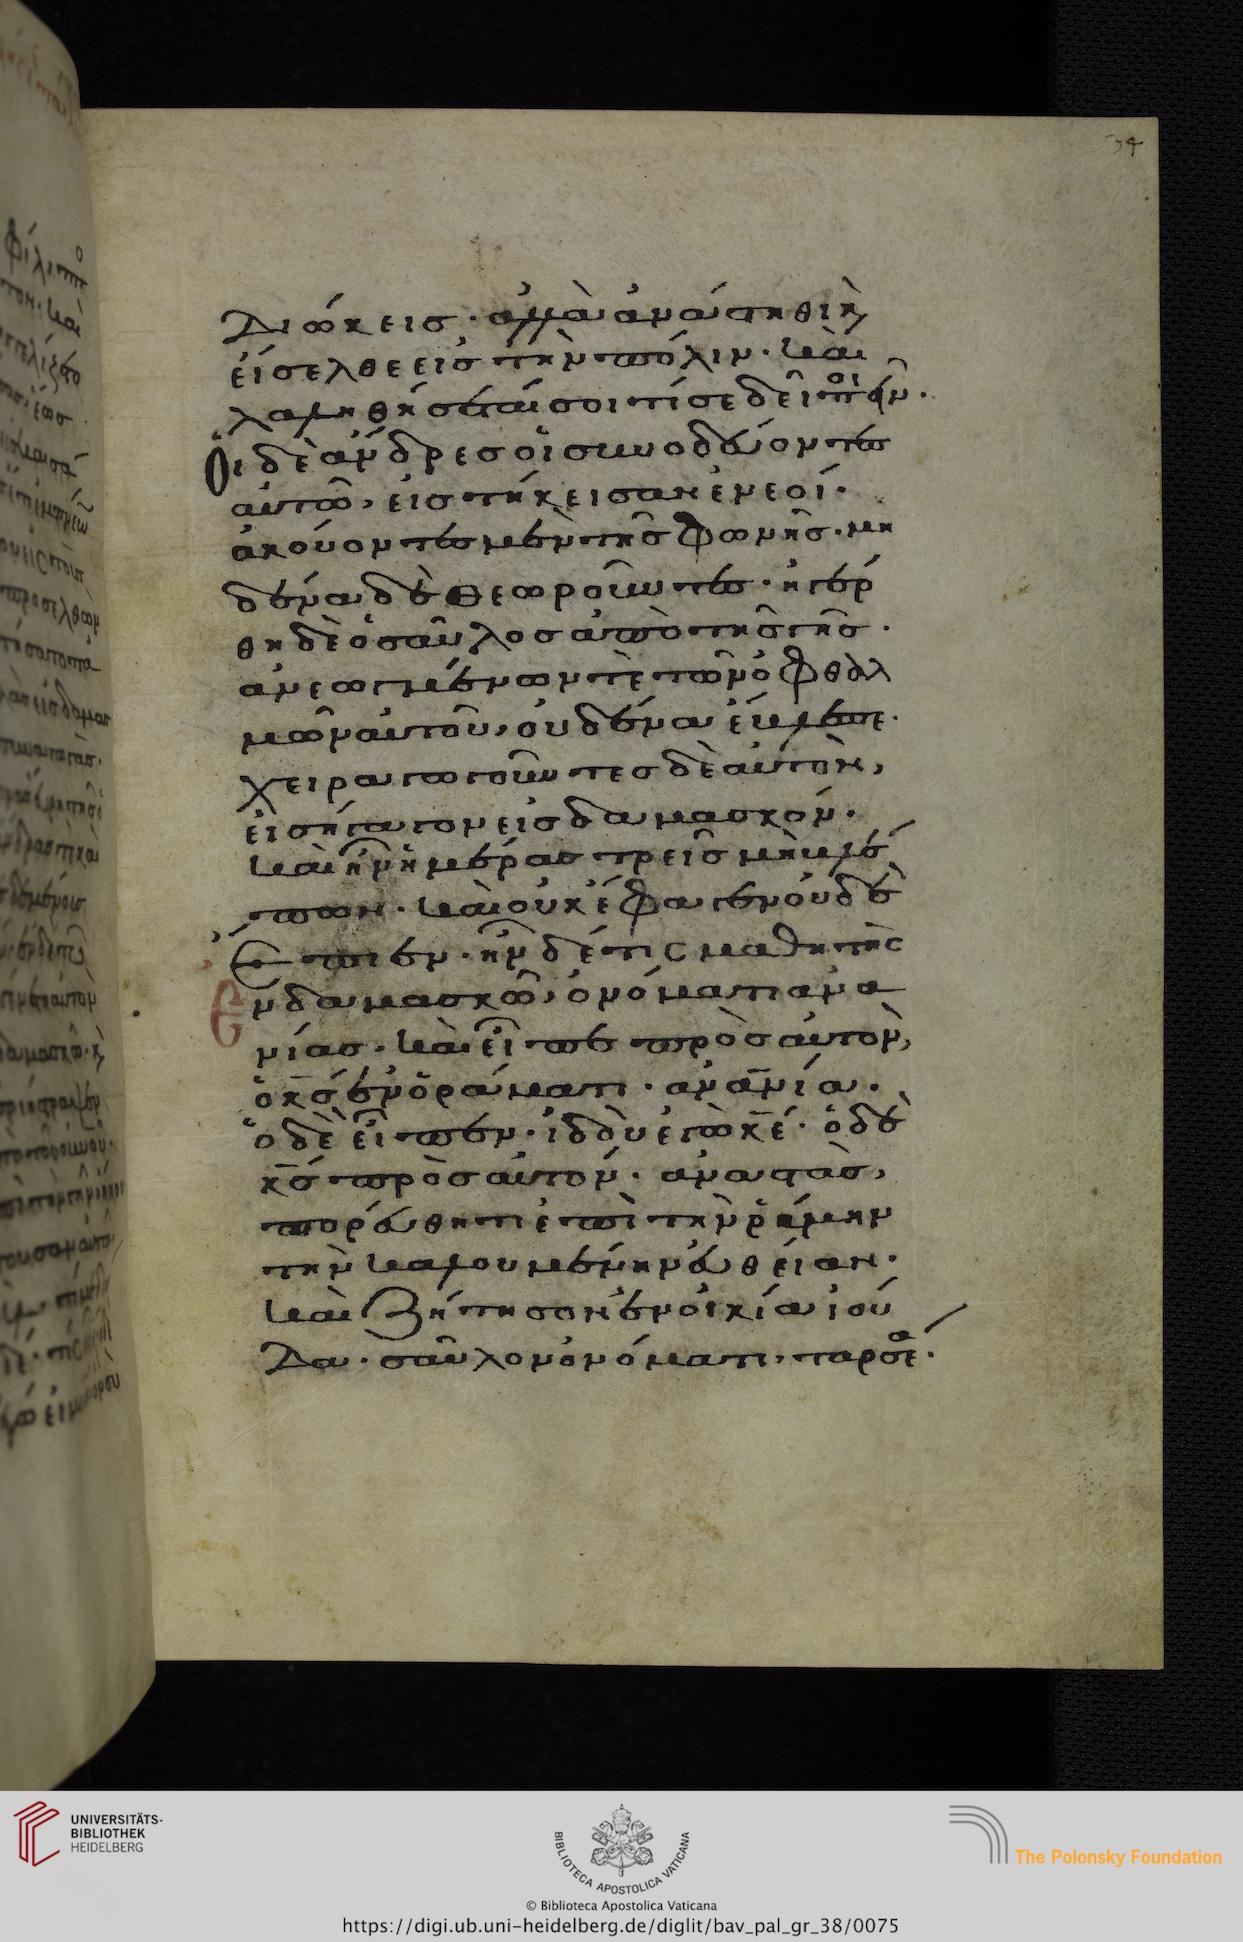 34
διώκεις· ἀλλὰ ἀνάστηθι κ(αὶ)
εἴσελθε εἰς τὴν πόλιν· καὶ
λαληθήσεταί σοι τί σε δεῖ ποιεῖν·
Οἱ δὲ ἄνδρες οἱ συνοδεύοντες
αὐτῶ, εἱστήκεισαν ἐνεοί·
ἀκούοντες μὲν τῆς φωνῆς· μη
δένα δὲ θεωροῦντες· ἠγέρ
θη δὲ ὁ σαῦλος ἀπὸ τῆς γῆς·
ἀνεωγμένων τὲ τῶν ὀφθαλ
μῶν αὐτοῦ, οὐδένα ἔβλεπε·
χειραγωγοῦντες δὲ αὐτὸν,
εἰσήγαγον εἰς δαμασκόν·
καὶ ἦν ἡμέρας τρεῖς μὴ βλέ
πων· καὶ οὐκ ἔφαγεν οὐδὲ
ἔπιεν· ἦν δέ τις μαθητὴς
ἐν δαμασκῶ, ὀνόματι ἀνα
νίας· καὶ εἶπε πρὸς αὐτὸν,
ὁ κ̅ς̅ ἐν ὁράματι· ἀνανία·
ὁ δὲ εἶπεν· ἰδοὺ ἐγὼ κ̅ε̅· ὁ δὲ
κ̅ς̅ πρὸς αὐτόν· ἀναστὰς,
πορεύθητι ἐπὶ τὴν ῥύμην
τὴν καλουμένην εὐθεῖαν·
καὶ ζήτησον ἐν οἰκία ἰού
δα· σαῦλον ὀνόματι, ταρσέα·
UNIVERSITÄTS-
BIBLIOTHEK
HEIDELBERG
BIBLIOTECA APOSTOLICA VATICANA
The Polonsky Foundation
© Biblioteca Apostolica Vaticana
https://digi.ub.uni-heidelberg.de/diglit/bav_pal_gr_38/0075